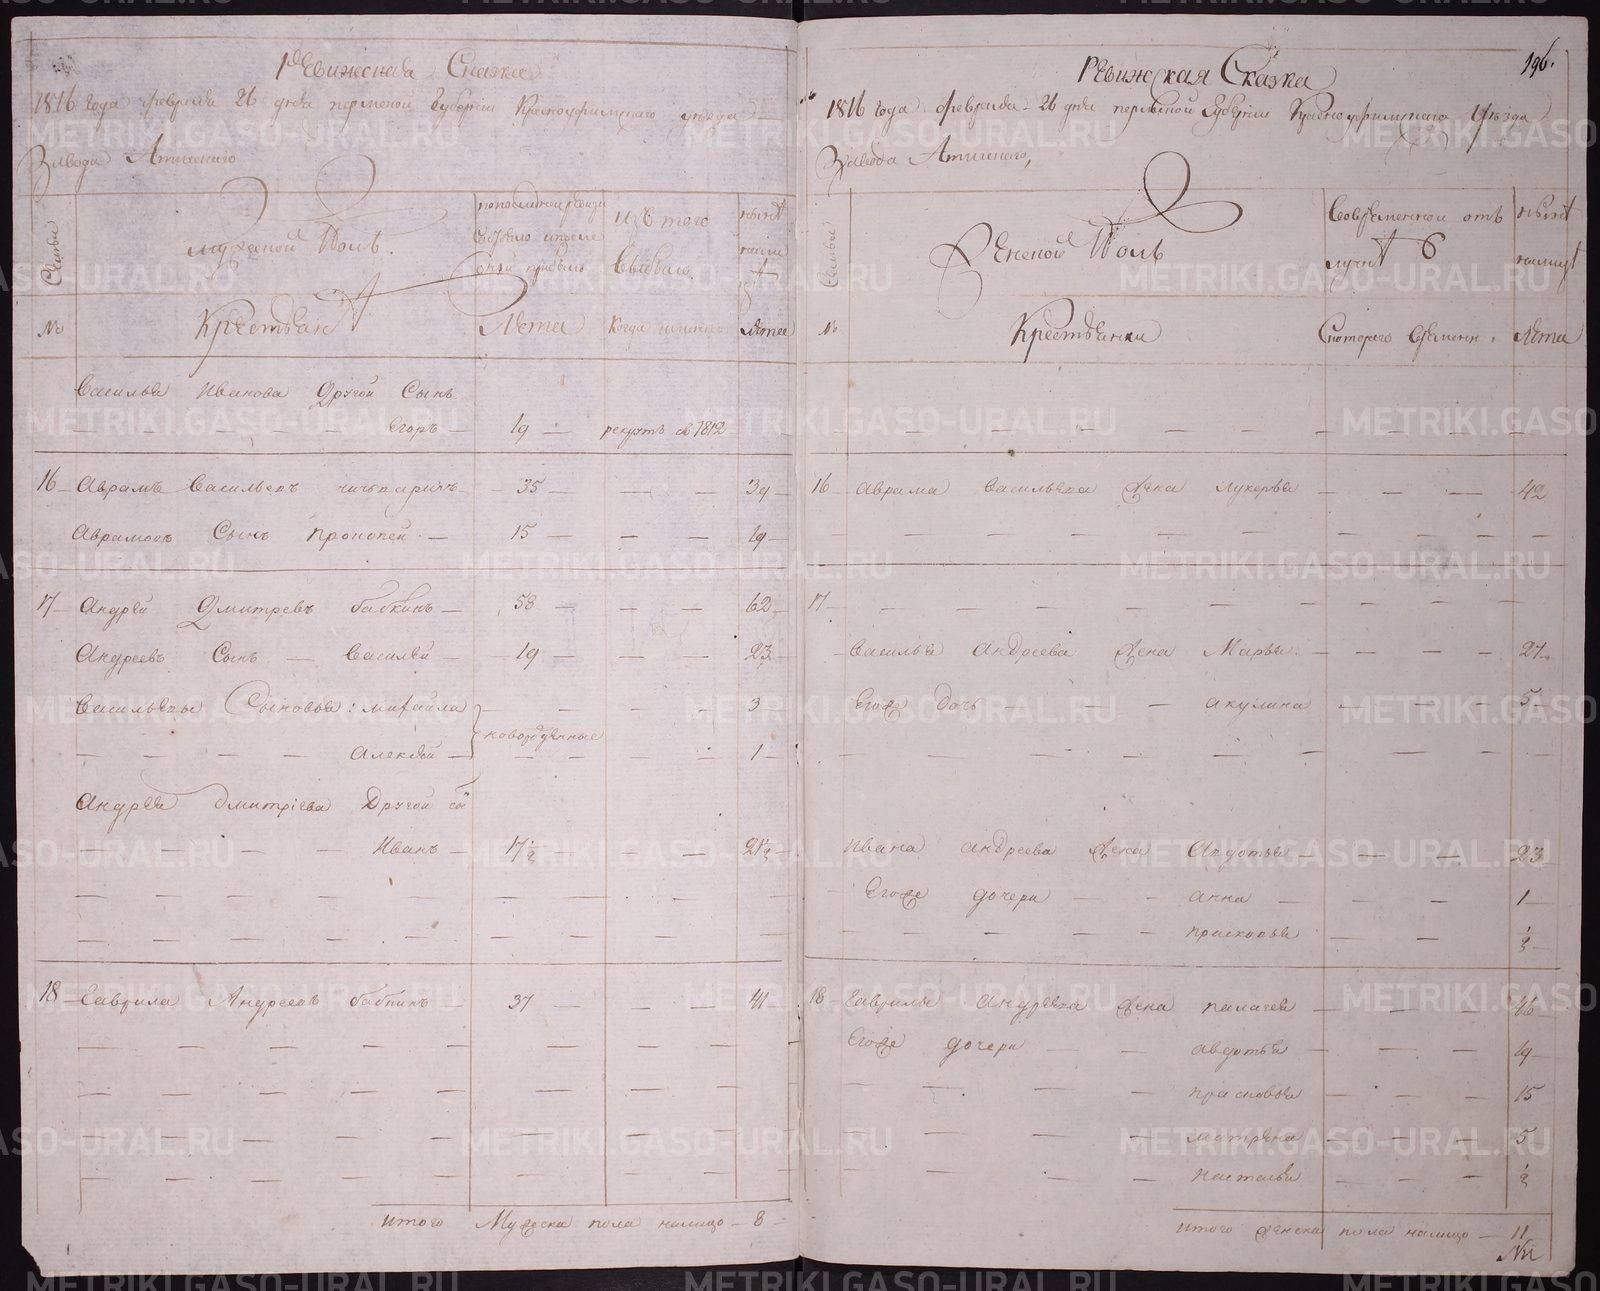 Ревижская Сказка
1816 года февраля 26 дня пермской Губернии Красноуфимского уезда
Завода Атигскаго
Семьи
мужеской Полъ.
попоследней ревизи
состояло ипосле
оной прибыло
изъ того
выбыло
нынѣ
налицѣ
№
Крестьяне
Лета
Когда именно
Лета
Василья Иванова Другой Сынъ
— — — — Егоръ — 19 — рекрутъ въ 1812
16 — Аврамъ Васильевъ — 35 — — — 39 —
Аврамовъ Сынъ Прокопей — 15 — — — 19 —
17 — Андрей Дмитревъ бабкинъ — 58 — — — 62 —
Андреевъ Сынъ — Василей — 19 — — — 23 —
Васильевы Сыновья: михайла — — — 3 —
новорожденные
— — — — Алексѣй — — — — 1 —
Андрея Дмитріева Другой сы
— — — — Иванъ — 17½ — — — 21½ —
18 — Гаврила Андреевъ бабкинъ — 37 — — — 41 —
итого Мужеска пола налицо — 8 —
196.
Ревижская Сказка
1816 года февраля 26 дня пермской Губернии Красноуфимского уезда
Завода Атигскаго,
Семьи
Женской Полъ
Современной отъ
лучкѣ
нынѣ
налицѣ
№
Крестьянки
Скоторого Времени.
Лета
16 — Аврама Васильева Жена лукерья — — — 42
17 — — — — — — — — — —
Василья Андреева Жена Марья — — — 27
Егоже дочь — — — акулина — — — 5
Ивана андреева Жена Авдотья — — — 23
Егоже дочери — — анна — — — 1
— — — — прасковья — — ½
18 — Гаврилы Андреева Жена палагея — — — 46
Егоже дочери — — авдотья — — — 19
— — — — прасковья — — — 15
— — — — матрена — — — 5
— — — — настасья — — — ½
итого женска пола налицо — 11
METRIKI.GASO-URAL.RU